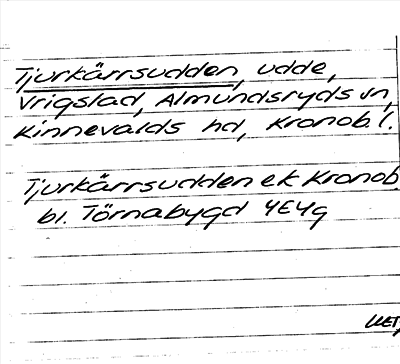 Tjurkärrsudden, udde,
Vrigstad, Almundsryds sn,
Kinnevalds hd, Kronob. l.
Tjurkärrsudden ek Kronob.
bl. Törnabygd 4E4g